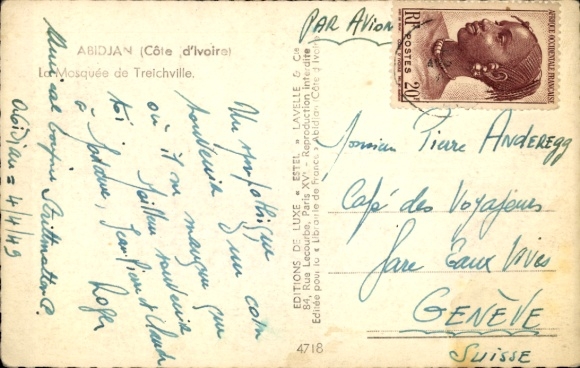 ABIDJAN (Côte d'Ivoire)
La Mosquée de Treichville.
Un sympathique
souvenir d'un coin
où il ne manque que
toi. Meilleur souvenir
à
Roger
Abidjan = 4/4/49
EDITIONS DE LUXE « ESTEL » LAVELLE & Cie
84, Rue Lecourbe, Paris XVe - Reproduction interdite
Editée pour la « Librairie de France » Abidjan (Côte d'Ivoire)
4718
PAR AVION
RF
POSTES 20F
AFRIQUE OCCIDENTALE FRANÇAISE
Monsieur Pierre ANDEREGG
Café des Voyageurs
Gare Eaux Vives
GENÈVE
SUISSE